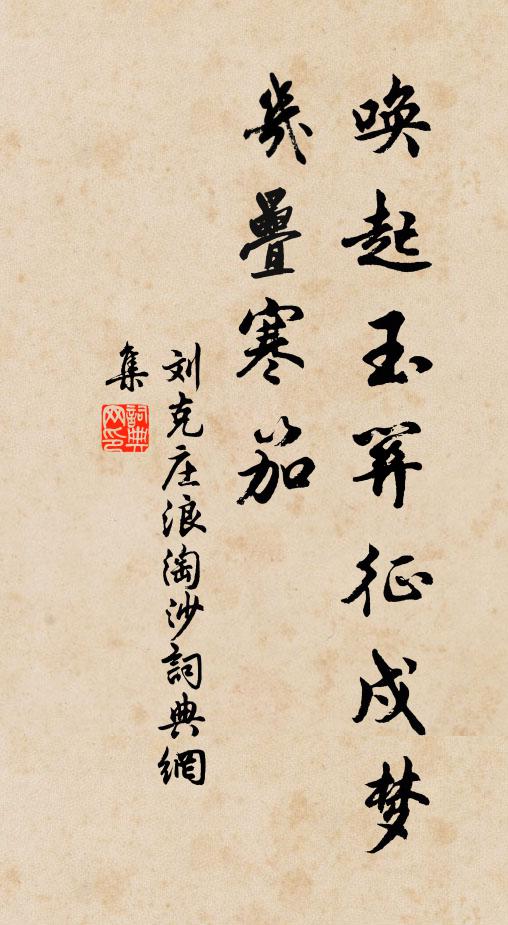 唤起玉关征戍梦
几叠寒笳
刘克庄浪淘沙詞典網
集
詞典网印